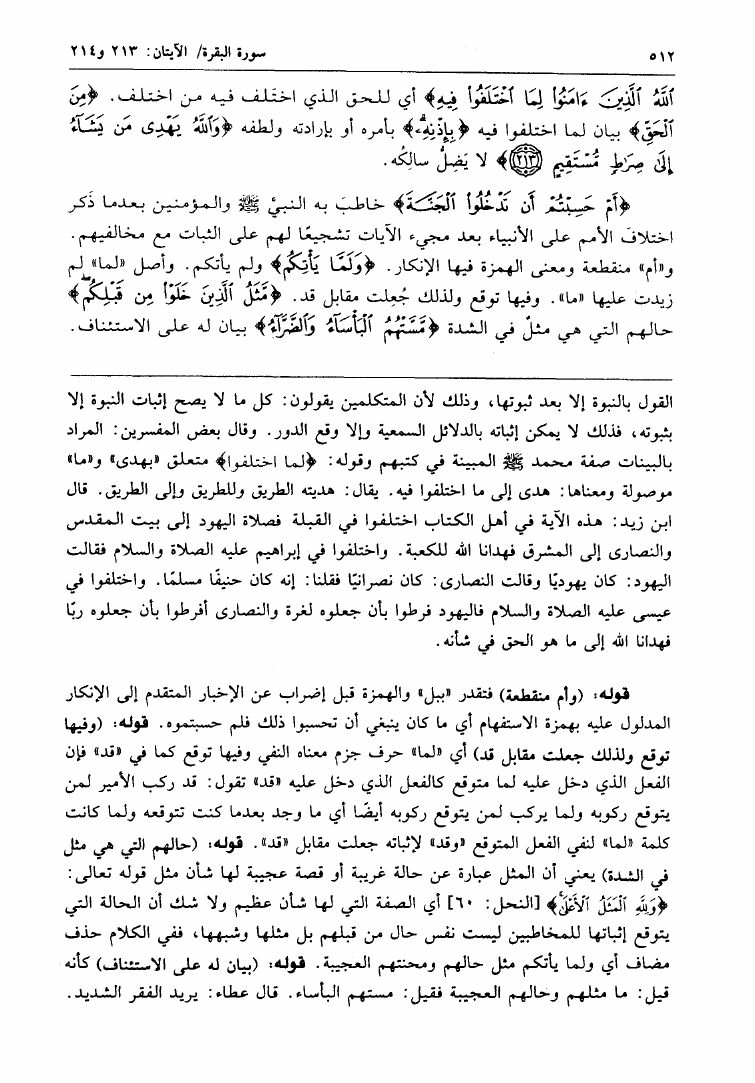 ٥١٢
سورة البقرة/ الآيتان: ٢١٣ و٢١٤
ٱللَّهُ ٱلَّذِينَ ءَامَنُوا۟ لِمَا ٱخْتَلَفُوا۟ فِيهِ﴾ أي للحق الذي اختَلف فيه من اختلف. ﴿مِنَ
ٱلْحَقِّ﴾ بيان لما اختلفوا فيه ﴿بِإِذْنِهِۦ﴾ بأمره أو بإرادته ولطفه ﴿وَٱللَّهُ يَهْدِى مَن يَشَآءُ
إِلَىٰ صِرَٰطٍ مُّسْتَقِيمٍ ﴿٢١٣﴾﴾ لا يَضِلُّ سالِكُه.
﴿أَمْ حَسِبْتُمْ أَن تَدْخُلُوا۟ ٱلْجَنَّةَ﴾ خاطبَ به النبيَّ ﷺ والمؤمنين بعدما ذَكر
اختلافَ الأمم على الأنبياء بعد مجيء الآيات تشجيعًا لهم على الثبات مع مخالفيهم.
و«أم» منقطعة ومعنى الهمزة فيها الإنكار. ﴿وَلَمَّا يَأْتِكُم﴾ ولم يأتكم. وأصل «لما» لم
زيدت عليها «ما». وفيها توقع ولذلك جُعلت مقابل قد. ﴿مَّثَلُ ٱلَّذِينَ خَلَوْا۟ مِن قَبْلِكُم﴾
حالهم التي هي مثلٌ في الشدة ﴿مَّسَّتْهُمُ ٱلْبَأْسَآءُ وَٱلضَّرَّآءُ﴾ بيان له على الاستئناف.
القول بالنبوة إلا بعد ثبوتها، وذلك لأن المتكلمين يقولون: كل ما لا يصح إثبات النبوة إلا
بثبوته، فذلك لا يمكن إثباته بالدلائل السمعية وإلا وقع الدور. وقال بعض المفسرين: المراد
بالبينات صفة محمد ﷺ المبينة في كتبهم وقوله: ﴿لما اختلفوا﴾ متعلق «بهدى» و«ما»
موصولة ومعناها: هدى إلى ما اختلفوا فيه. يقال: هديته الطريق وللطريق وإلى الطريق. قال
ابن زيد: هذه الآية في أهل الكتاب اختلفوا في القبلة فصلاة اليهود إلى بيت المقدس
والنصارى إلى المشرق فهدانا الله للكعبة. واختلفوا في إبراهيم عليه الصلاة والسلام فقالت
اليهود: كان يهوديًا وقالت النصارى: كان نصرانيًا فقلنا: إنه كان حنيفًا مسلمًا. واختلفوا في
عيسى عليه الصلاة والسلام فاليهود فرطوا بأن جعلوه لغرة والنصارى أفرطوا بأن جعلوه ربًا
فهدانا الله إلى ما هو الحق في شأنه.
قوله: (وأم منقطعة) فتقدر «ببل» والهمزة قبل إضراب عن الإخبار المتقدم إلى الإنكار
المدلول عليه بهمزة الاستفهام أي ما كان ينبغي أن تحسبوا ذلك فلم حسبتموه. قوله: (وفيها
توقع ولذلك جعلت مقابل قد) أي «لما» حرف جزم معناه النفي وفيها توقع كما في «قد» فإن
الفعل الذي دخل عليه لما متوقع كالفعل الذي دخل عليه «قد» تقول: قد ركب الأمير لمن
يتوقع ركوبه ولما يركب لمن يتوقع ركوبه أيضًا أي ما وجد بعدما كنت تتوقعه ولما كانت
كلمة «لما» لنفي الفعل المتوقع «وقد» لإثباته جعلت مقابل «قد». قوله: (حالهم التي هي مثل
في الشدة) يعني أن المثل عبارة عن حالة غريبة أو قصة عجيبة لها شأن مثل قوله تعالى:
﴿وَلِلَّهِ ٱلْمَثَلُ ٱلْأَعْلَىٰ﴾ [النحل: ٦٠] أي الصفة التي لها شأن عظيم ولا شك أن الحالة التي
يتوقع إثباتها للمخاطبين ليست نفس حال من قبلهم بل مثلها وشبهها، ففي الكلام حذف
مضاف أي ولما يأتكم مثل حالهم ومحنتهم العجيبة. قوله: (بيان له على الاستئناف) كأنه
قيل: ما مثلهم وحالهم العجيبة فقيل: مستهم البأساء. قال عطاء: يريد الفقر الشديد.